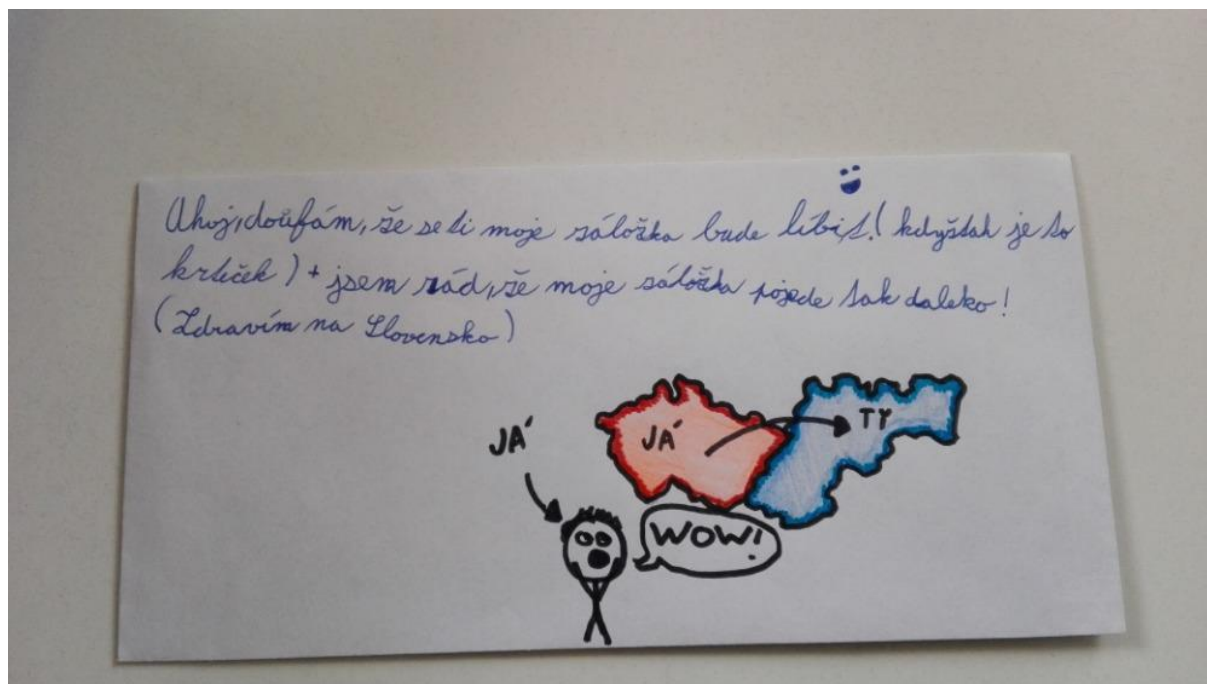 Ahoj, doufám, že se ti moje záložka bude líbit! (kdyžtak je to
krteček) + jsem rád, že moje záložka pojede tak daleko!
(Zdravím na Slovensko)
JÁ
JÁ
TY
WOW!